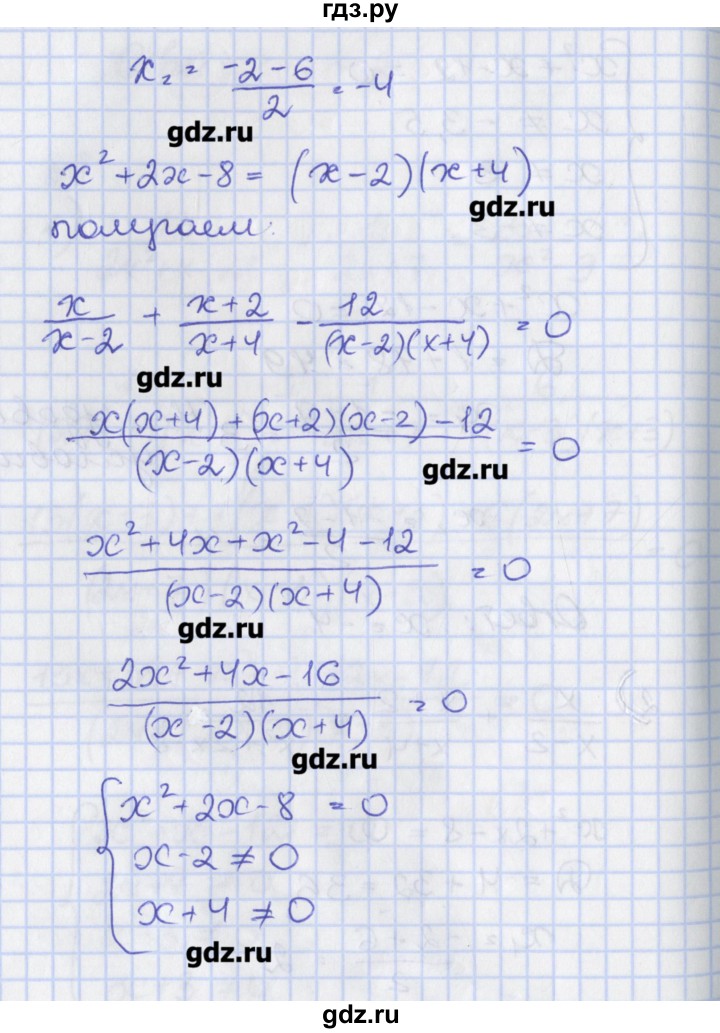 гдз.ру
x₂ = (-2-6)/2 = -4
gdz.ru
x² + 2x - 8 = (x-2)(x+4)
gdz.ru
получаем:
x/(x-2) + (x+2)/(x+4) - 12/((x-2)(x+4)) = 0
gdz.ru
(x(x+4) + (x+2)(x-2) - 12)/((x-2)(x+4)) = 0
gdz.ru
(x² + 4x + x² - 4 - 12)/((x-2)(x+4)) = 0
gdz.ru
(2x² + 4x - 16)/((x-2)(x+4)) = 0
gdz.ru
{ x² + 2x - 8 = 0
x - 2 ≠ 0
x + 4 ≠ 0
gdz.ru
gdz.ru